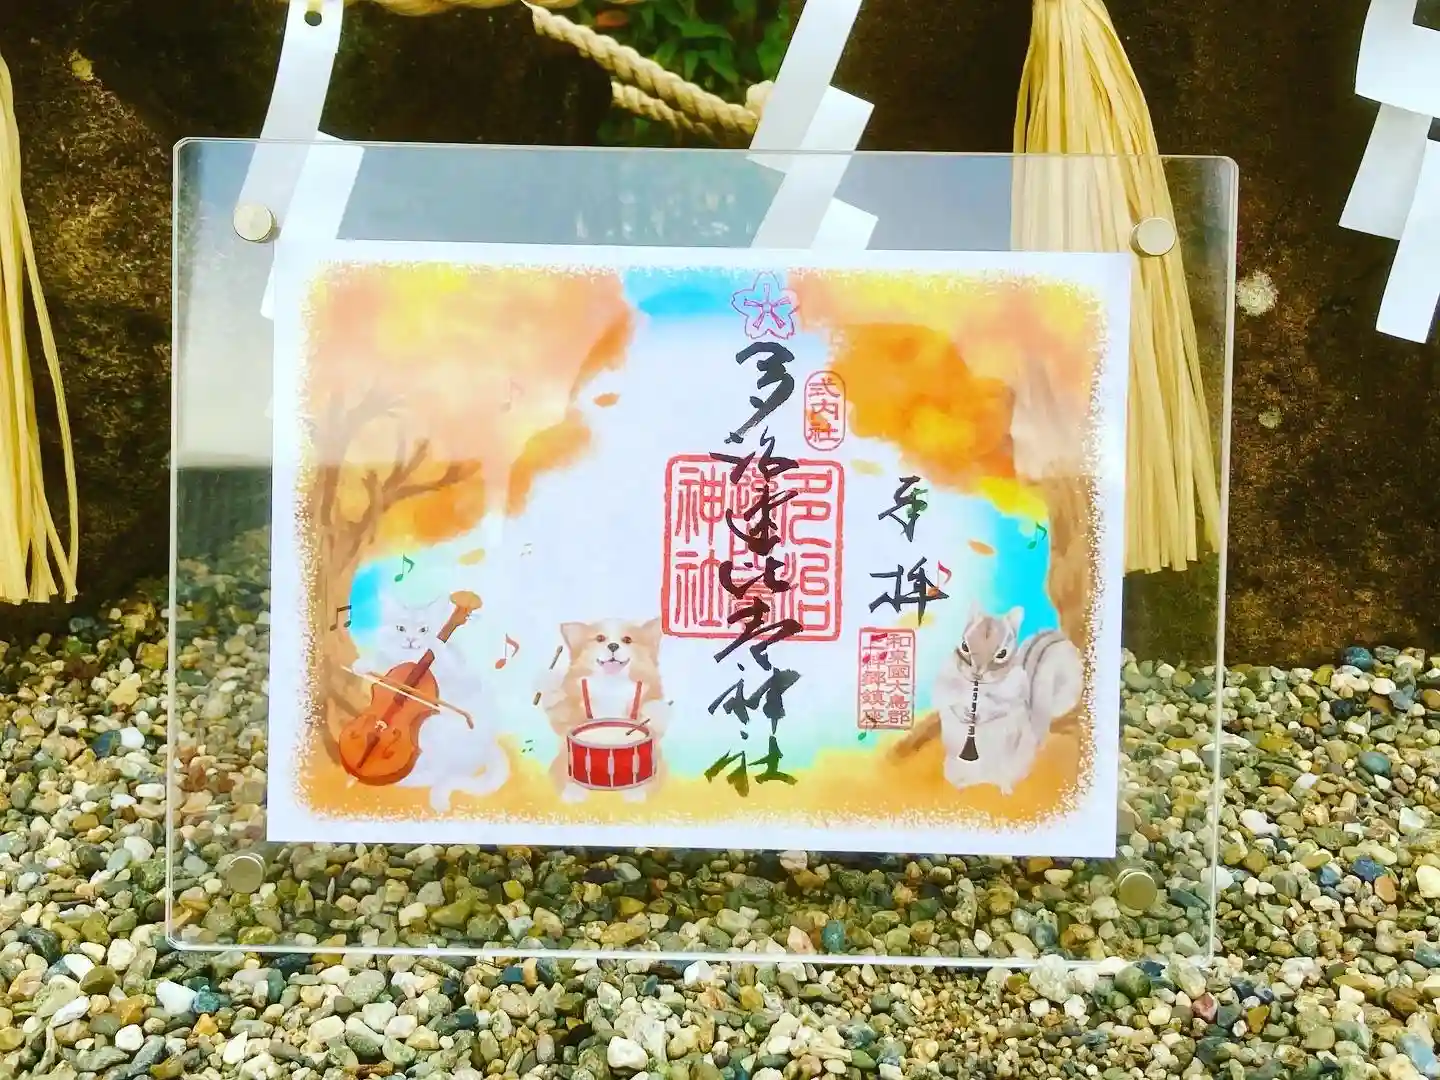 奉拝
和泉國大鳥郡
上神郷鎮座
式内社
多治速比売神社
多治
神社